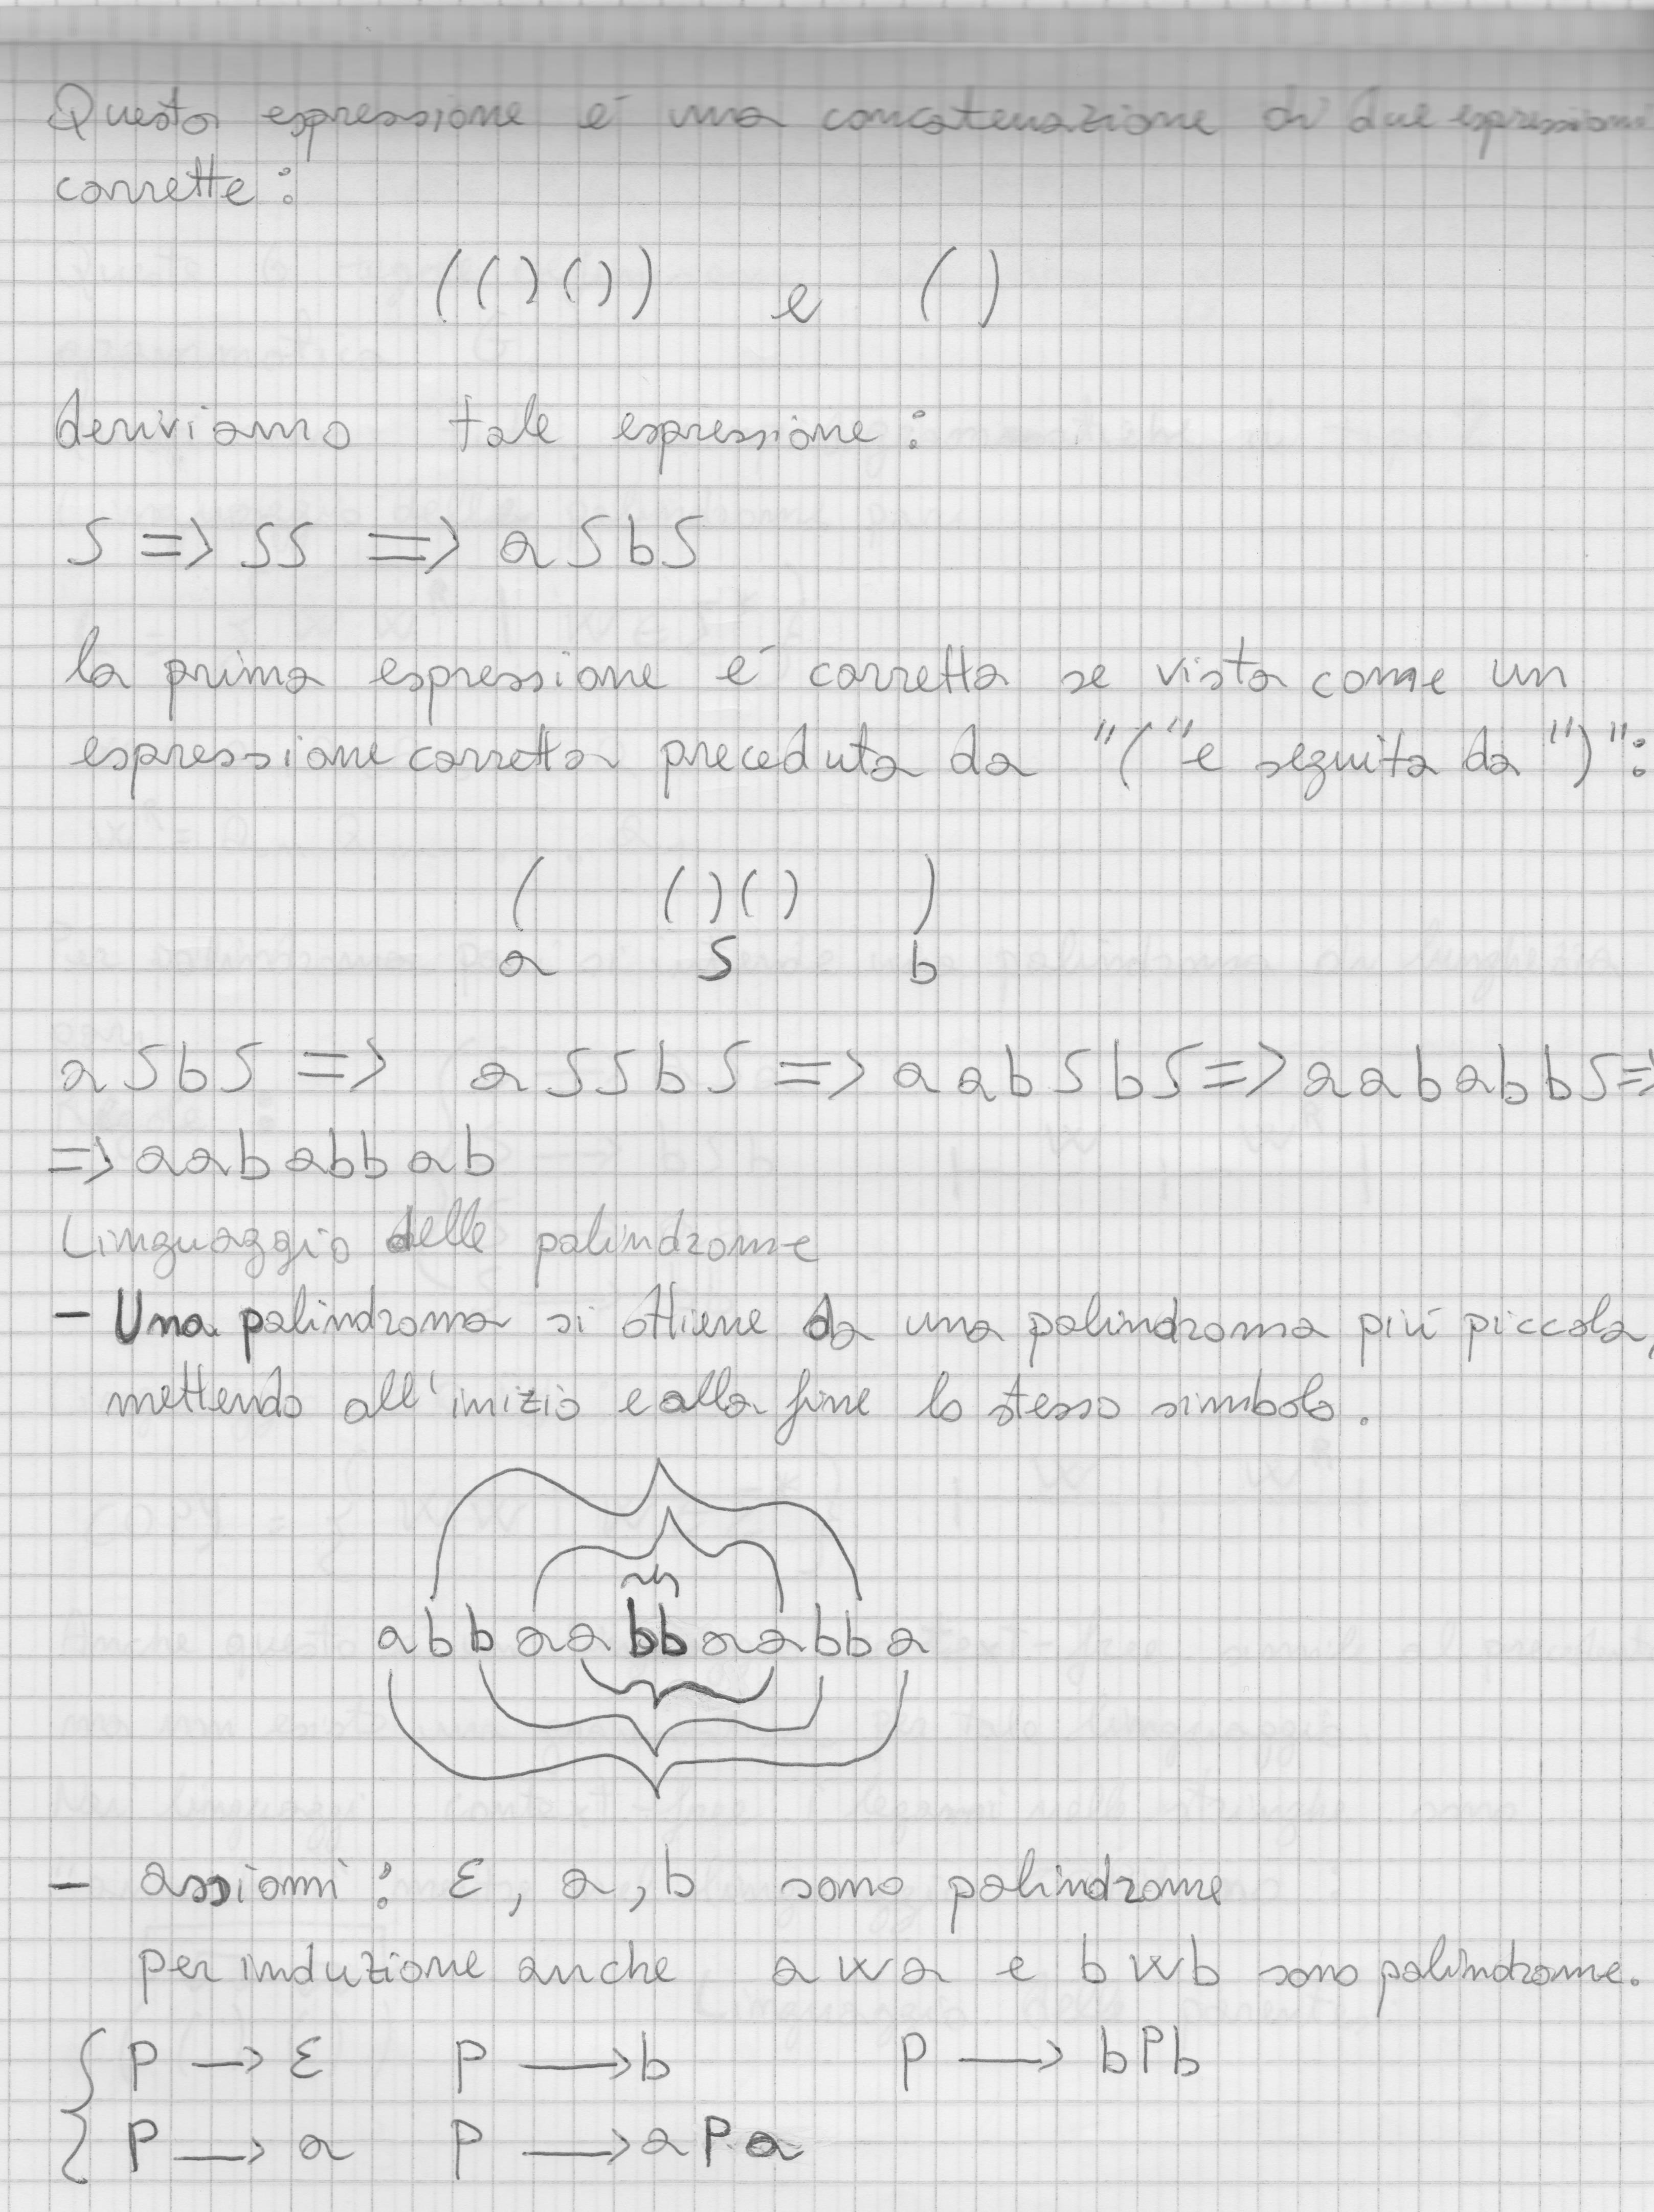 Questa espressione é una concatenazione di due espressioni
corrette:
(()()) e ()
deriviamo tale espressione:
S => SS => aSbS
la prima espressione é corretta se vista come un
espressione corretta preceduta da "(" e seguita da ")":
( ()() )
a S b
aSbS => aSSbS => aabSbS => aababbS =>
=> aababbab
Linguaggio delle palindrome
- Una palindroma si ottiene da una palindroma piú piccola,
mettendo all'inizio e alla fine lo stesso simbolo.
abbaabbaabba
- assiomi: ε, a, b sono palindrome
per induzione anche awa e bwb sono palindrome.
P → ε P → b P → bPb
P → a P → aPa